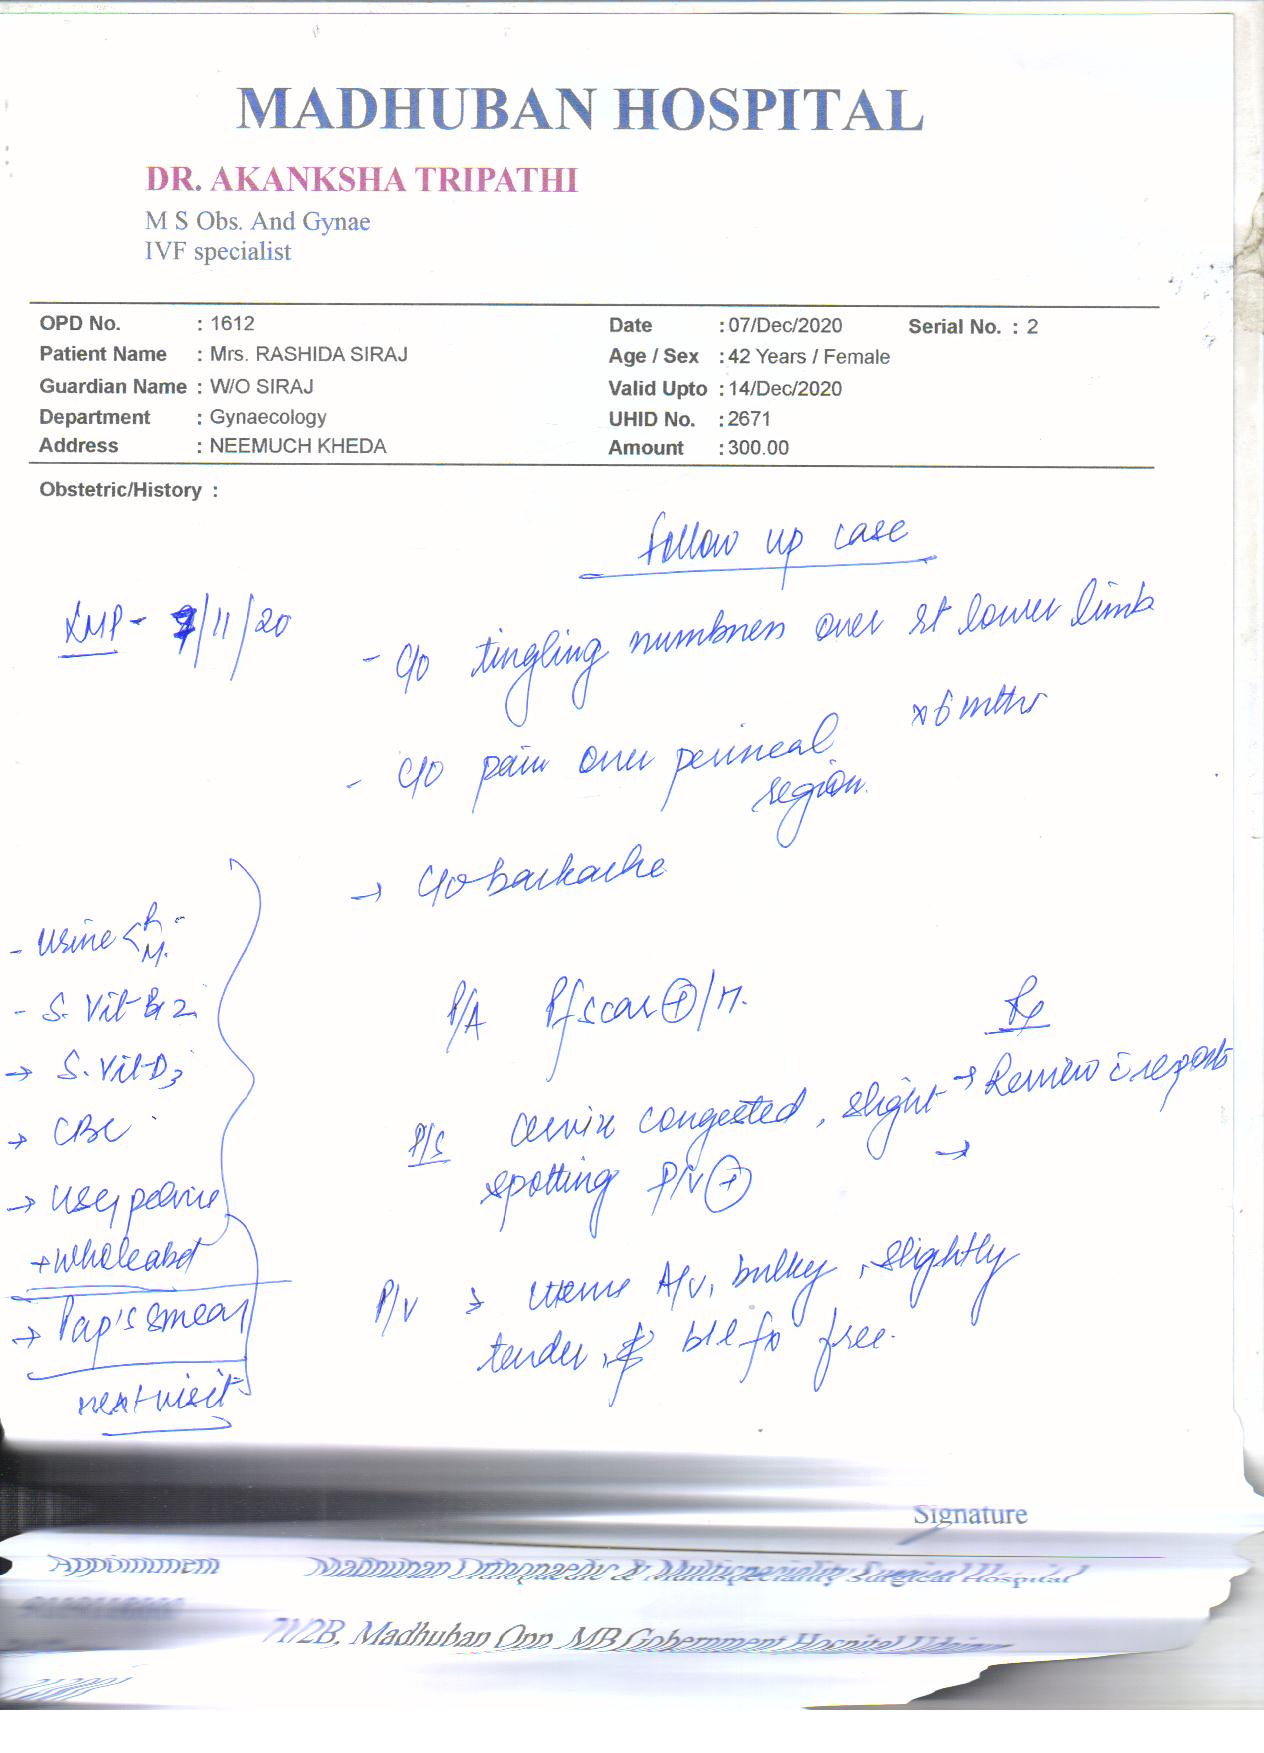 MADHUBAN HOSPITAL
DR. AKANKSHA TRIPATHI
M S Obs. And Gynae
IVF specialist
OPD No. : 1612 Date : 07/Dec/2020 Serial No. : 2
Patient Name : Mrs. RASHIDA SIRAJ Age / Sex : 42 Years / Female
Guardian Name : W/O SIRAJ Valid Upto : 14/Dec/2020
Department : Gynaecology UHID No. : 2671
Address : NEEMUCH KHEDA Amount : 300.00
Obstetric/History :
follow up case
LMP - 7/11/20
- c/o tingling numbness over rt lower limb
x 6 mths
- c/o pain over perineal
region.
→ c/o backache
- urine < R
M.
- S. Vit B12
→ S. Vit D3
→ CBC
→ USG pelvis
+ whole abd
→ Pap's smear
next visit
P/A Pf scar ⊕/H.
Rx
→ Review c̄ reports
→
P/S cervix congested, slight
spotting P/V ⊕
P/V → uterus A/V, bulky, slightly
tender, b/l fx free.
Signature
Appointment Madhuban Orthopaedic & Multispeciality Surgical Hospital
71/2B, Madhuban Opp. MB Gobernment Hospitel Udaipur